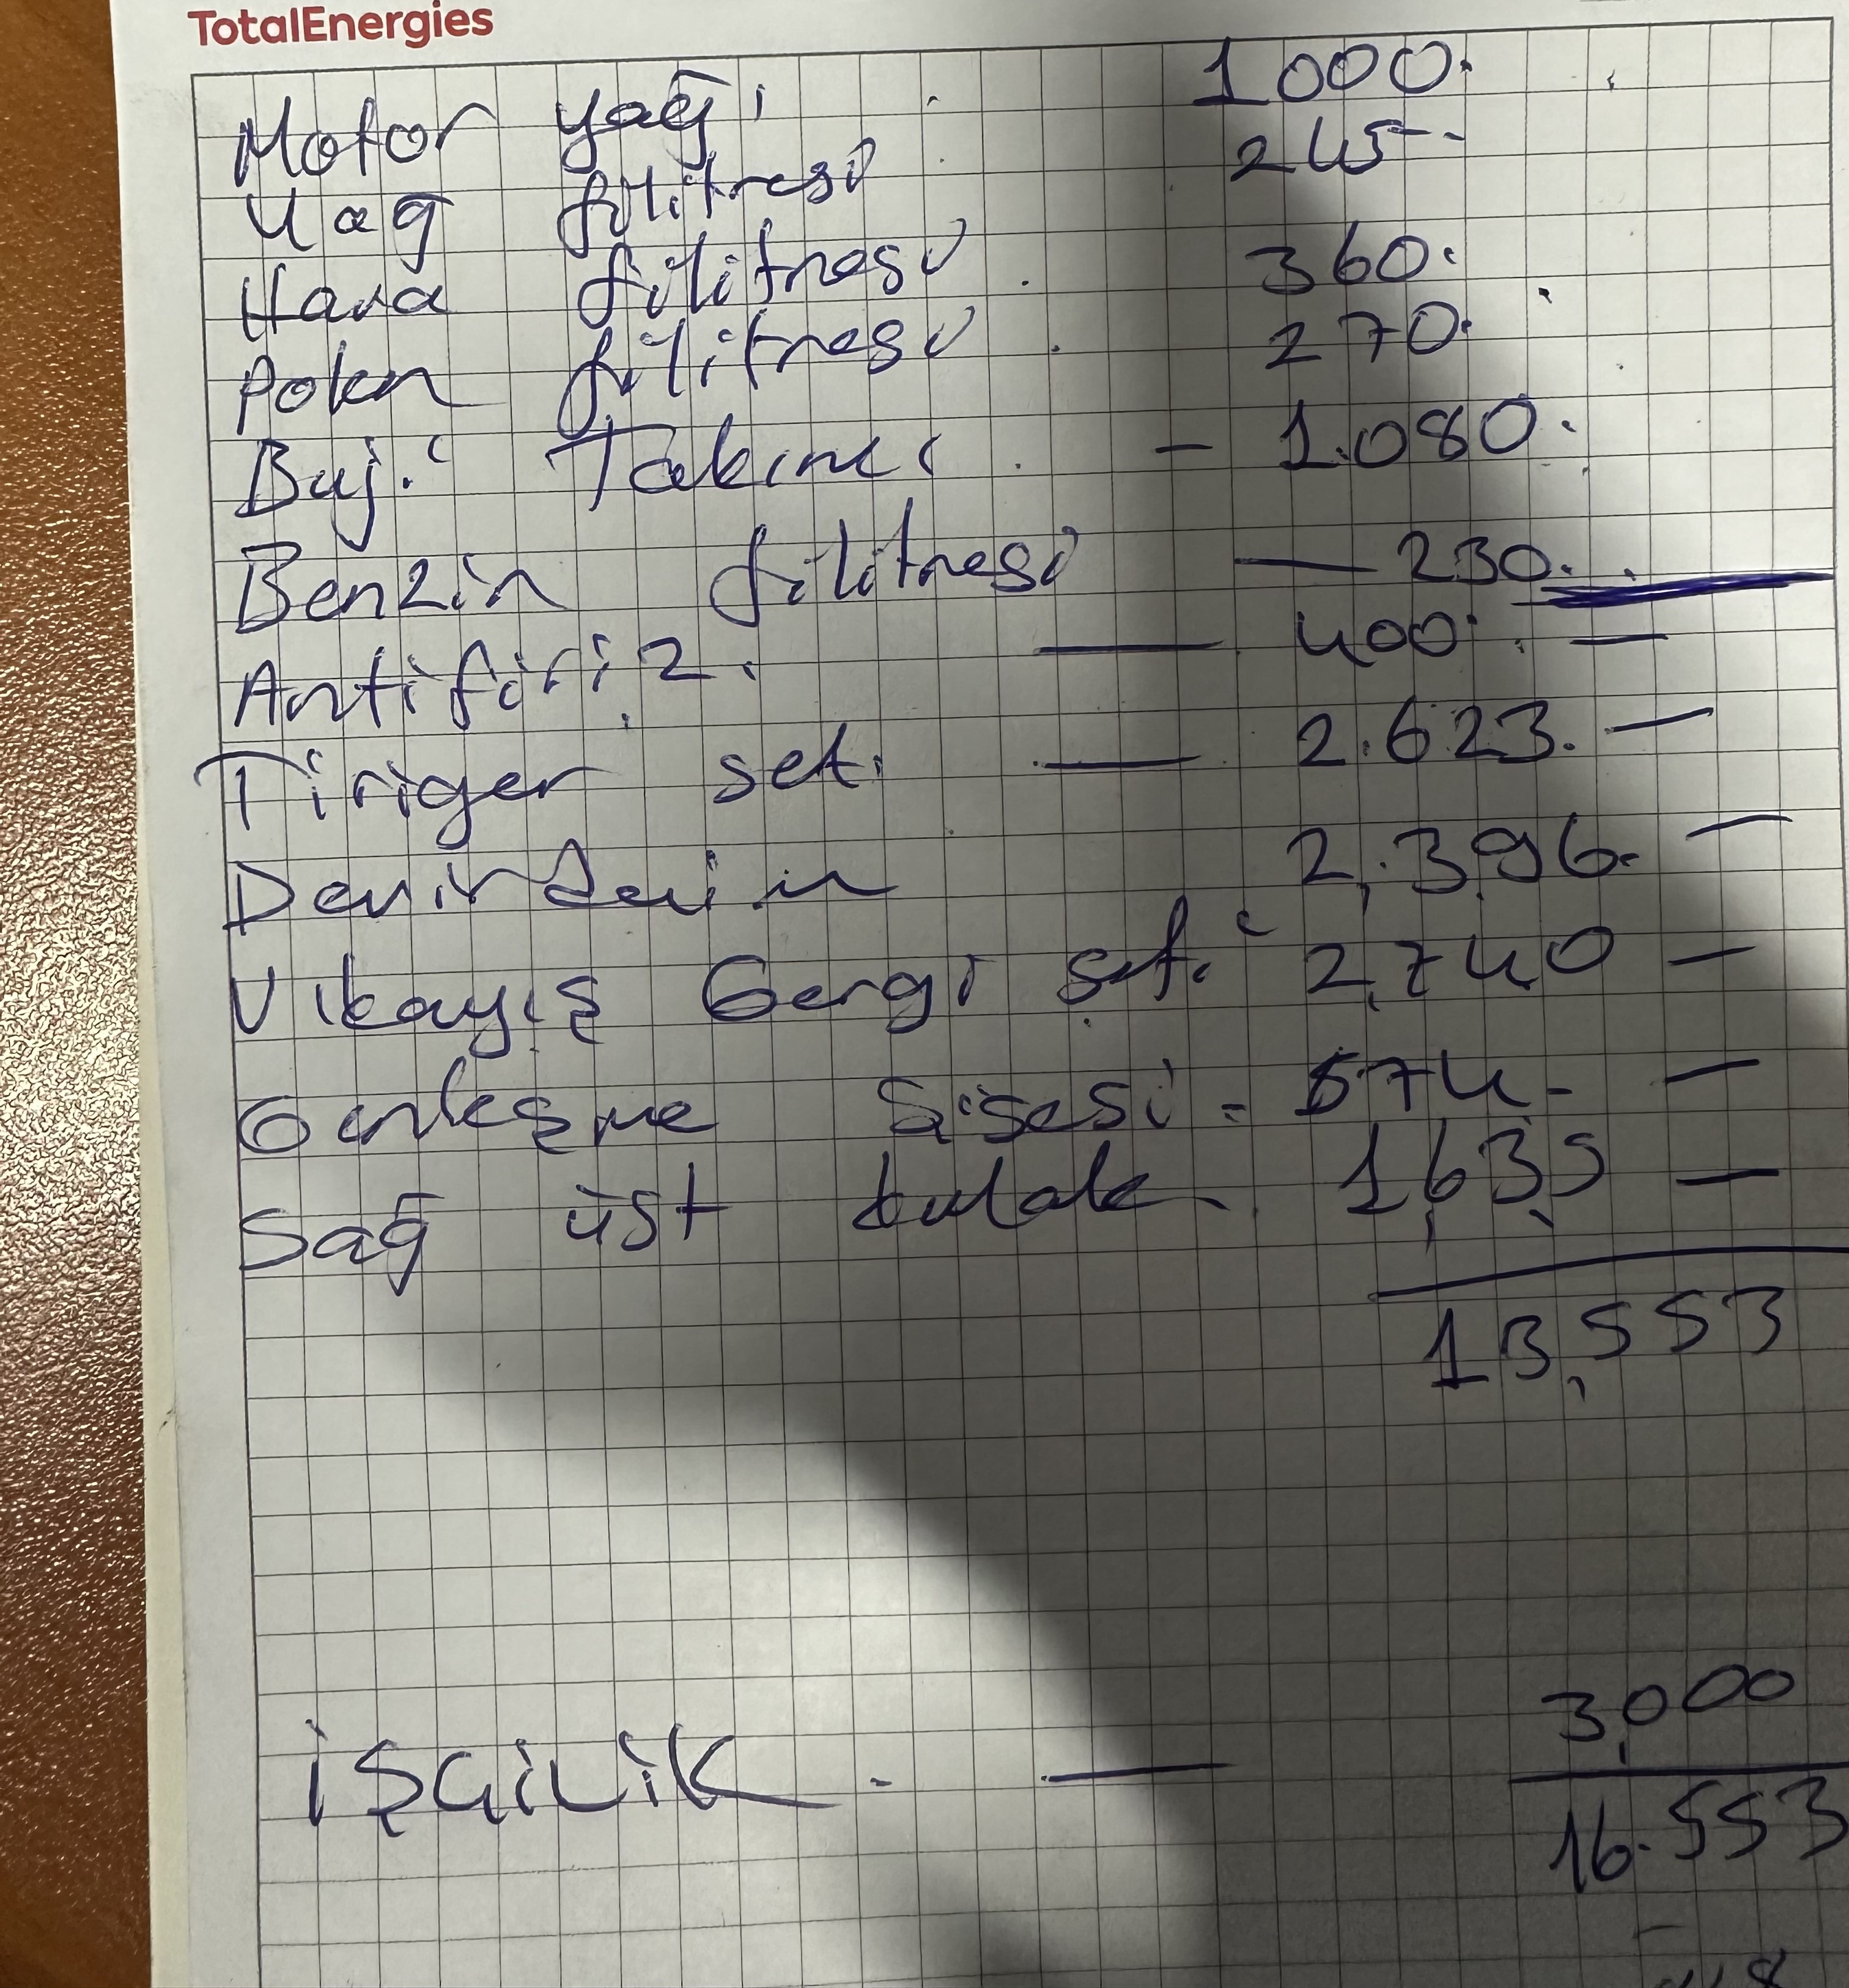 TotalEnergies
Motor yağı 1000.
Yağ filitresi 245--
Hava filitresi . 360.
Polen filitresi . 270.
Buji Takımı . - 1.080.
Benzin filitresi — 230.
Antifiriz. — 400. —
Tiriger set. — 2.623. —
Devirdaim 2,396. —
V kayış Gergi seti 2,740 —
Genleşme Şişesi = 574- —
Sağ üst kulak - 1,635 —
13,553
3,000
işçilik - —
16.553